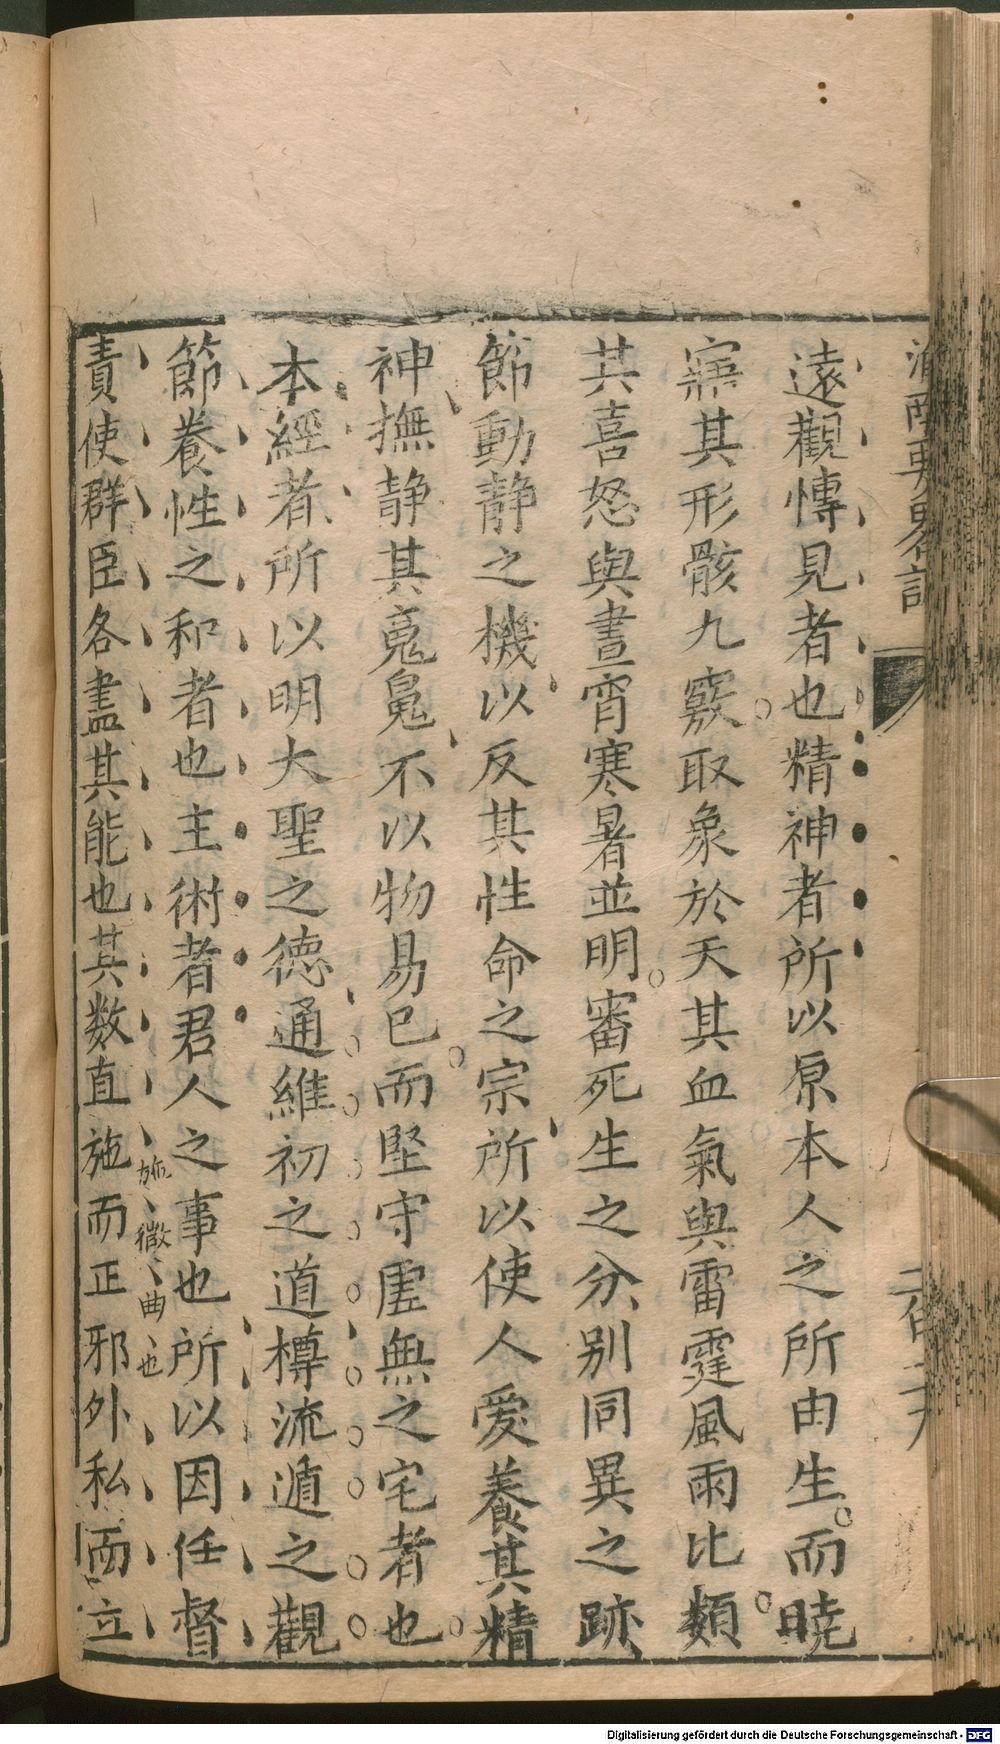 遠觀愽見者也精神者所以原本人之所由生而曉
寤其形骸九竅取象於天其血氣與雷霆風雨比類
其喜怒與晝宵寒暑並明審死生之分別同異之跡
節動静之機以反其性命之宗所以使人愛養其精
神撫静其䰟鬼不以物易已而堅守虛無之宅者也
本經者所以明大聖之德通維初之道樽流遁之觀
節養性之和者也主術者君人之事也所以因任督
責使群臣各盡其能也其数直施而正邪外私而立
Digitalisierung gefördert durch die Deutsche Forschungsgemeinschaft - DFG